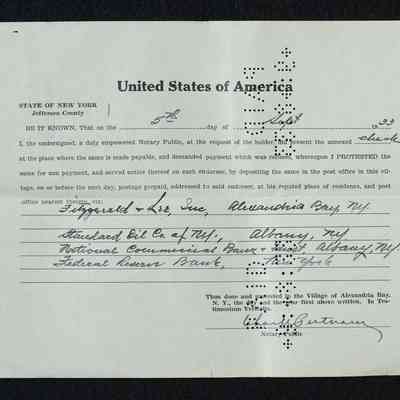 United States of America
STATE OF NEW YORK
Jefferson County
BE IT KNOWN, That on the 5th day of Sept 33
I, the undersigned, a duly empowered Notary Public, at the request of the holder, did present the annexed check
at the place where the same is made payable, and demanded payment which was refused, whereupon I PROTESTED the
same for non payment, and served notice thereof on each endorser, by depositing the same in the post office in this vil-
lage, on or before the next day, postage prepaid, addressed to said endorser, at his reputed place of residence, and post
office nearest thereto, viz:
Fitzgerald & Lee, Inc, Alexandria Bay, NY
Standard Oil Co of NY, Albany, NY
National Commercial Bank & Trust Albany, NY
Federal Reserve Bank, New York
Thus done and protested in the Village of Alexandria Bay,
N. Y., the day and the year first above written. In Tes-
timonium Veritatis.
Notary Public